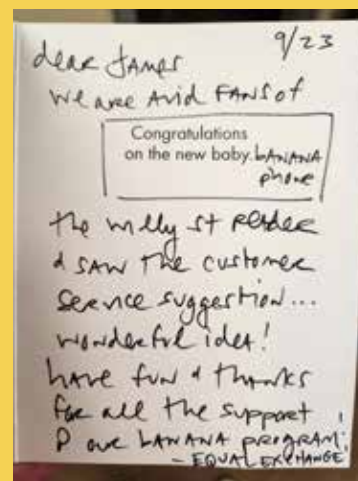 9/23
dear JAMES
we are Avid FANS of
Congratulations
on the new baby. bANANA
phone
the willy st reader
& saw the customer
service suggestion...
wonderful idea!
have fun & thanks
for all the support !
P our bANANA PROGRAM.
- EQUAL EXCHANGE